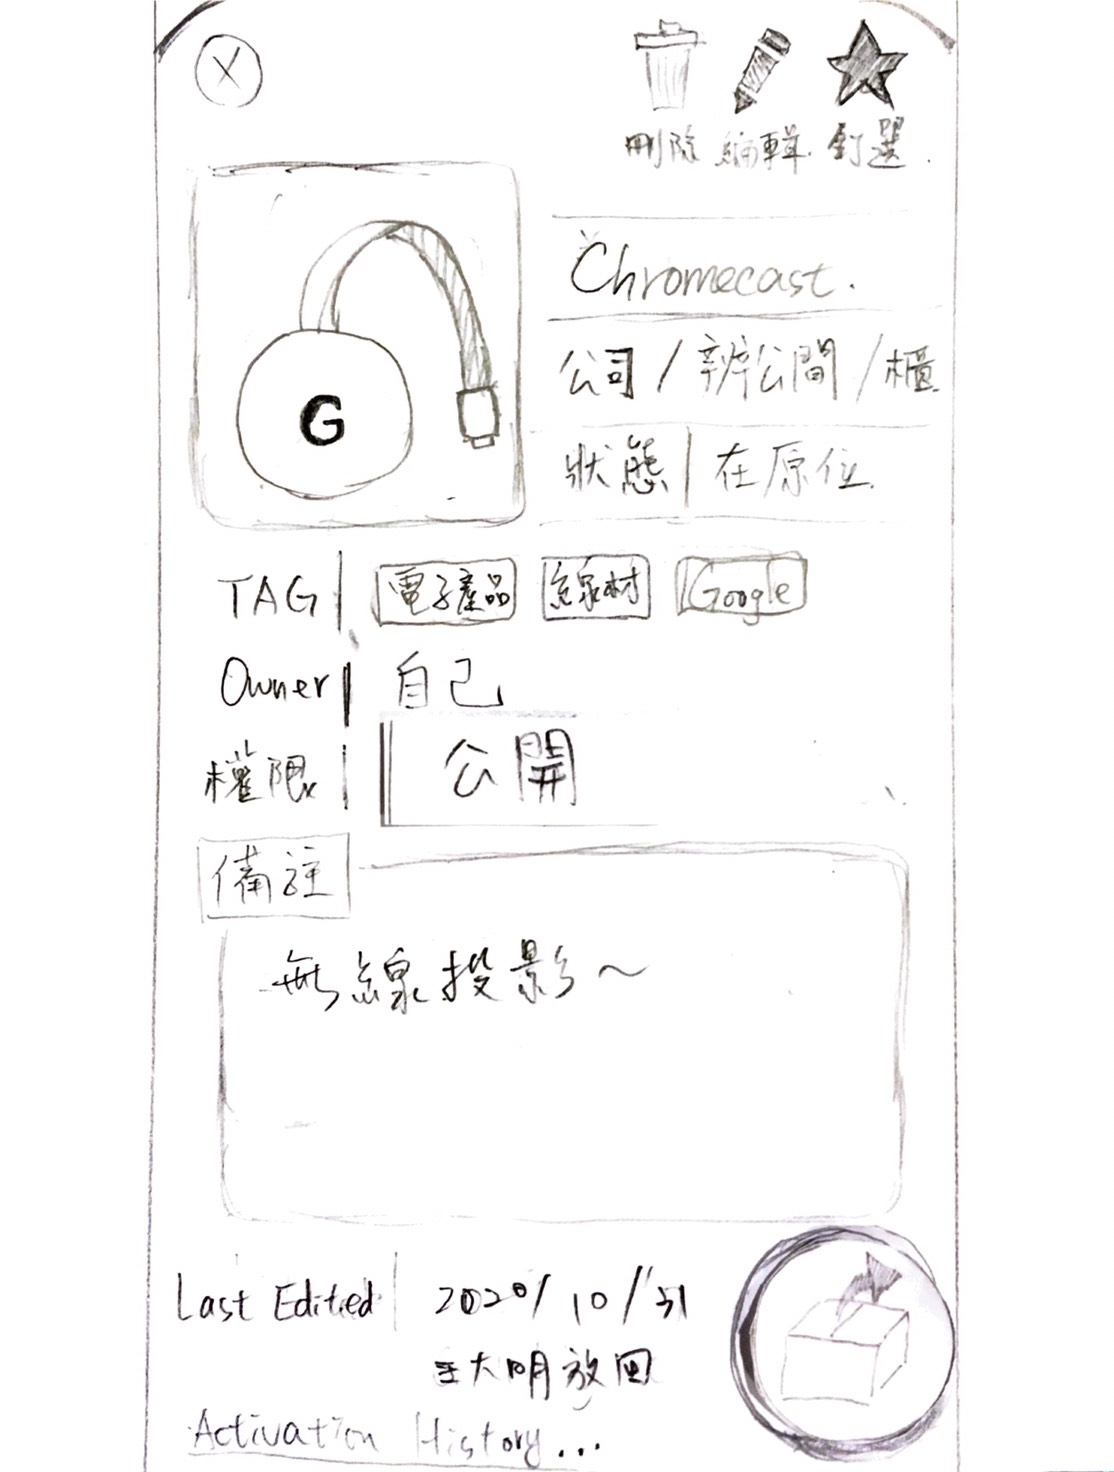 X
刪除 編輯 釘選
Chromecast.
公司 / 辦公間 / 櫃
G
狀態 | 在原位
TAG | 電子產品 線材 Google
Owner | 自己
權限 | 公開
備註
無線投影~
Last Edited | 2020/10/31
王大明放回
Activation History...